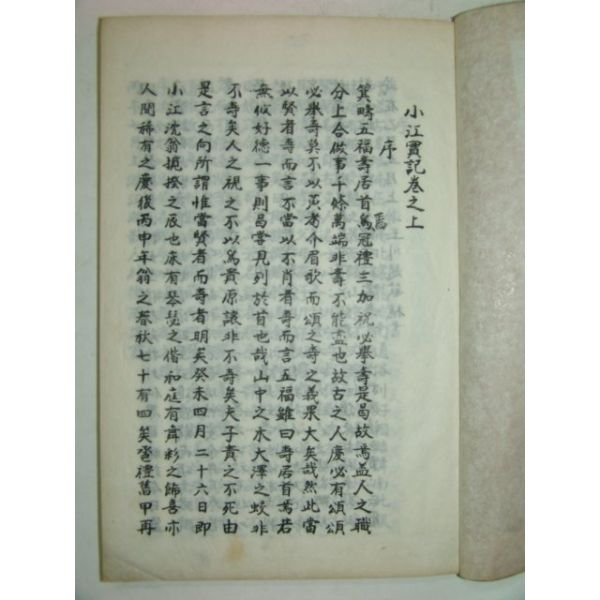 小江實記卷之上
序
箕疇五福壽居首焉冠禮三加祝必擧壽是曷故焉盖人之職
分上合做事千條萬端非壽不能盡也故古之人慶必有頌頌
必擧壽莫不以黃耇介眉歌而頌之壽之義果大矣哉然此當
以賢者壽而言不當以不肖者壽而言五福雖曰壽居首焉若
無攸好德一事則曷嘗見列於首也哉山中之木大澤之蛟非
不壽矣人之視之不以爲貴原讓非不壽矣夫子責之不死由
是言之向所謂惟當賢者而壽者明矣癸未四月二十六日即
小江沈翁揽揆之辰也床有琴瑟之偕和庭有舞彩之餙喜亦
人間稀有之慶後丙申年翁之春秋七十有四矣卺禮舊甲再